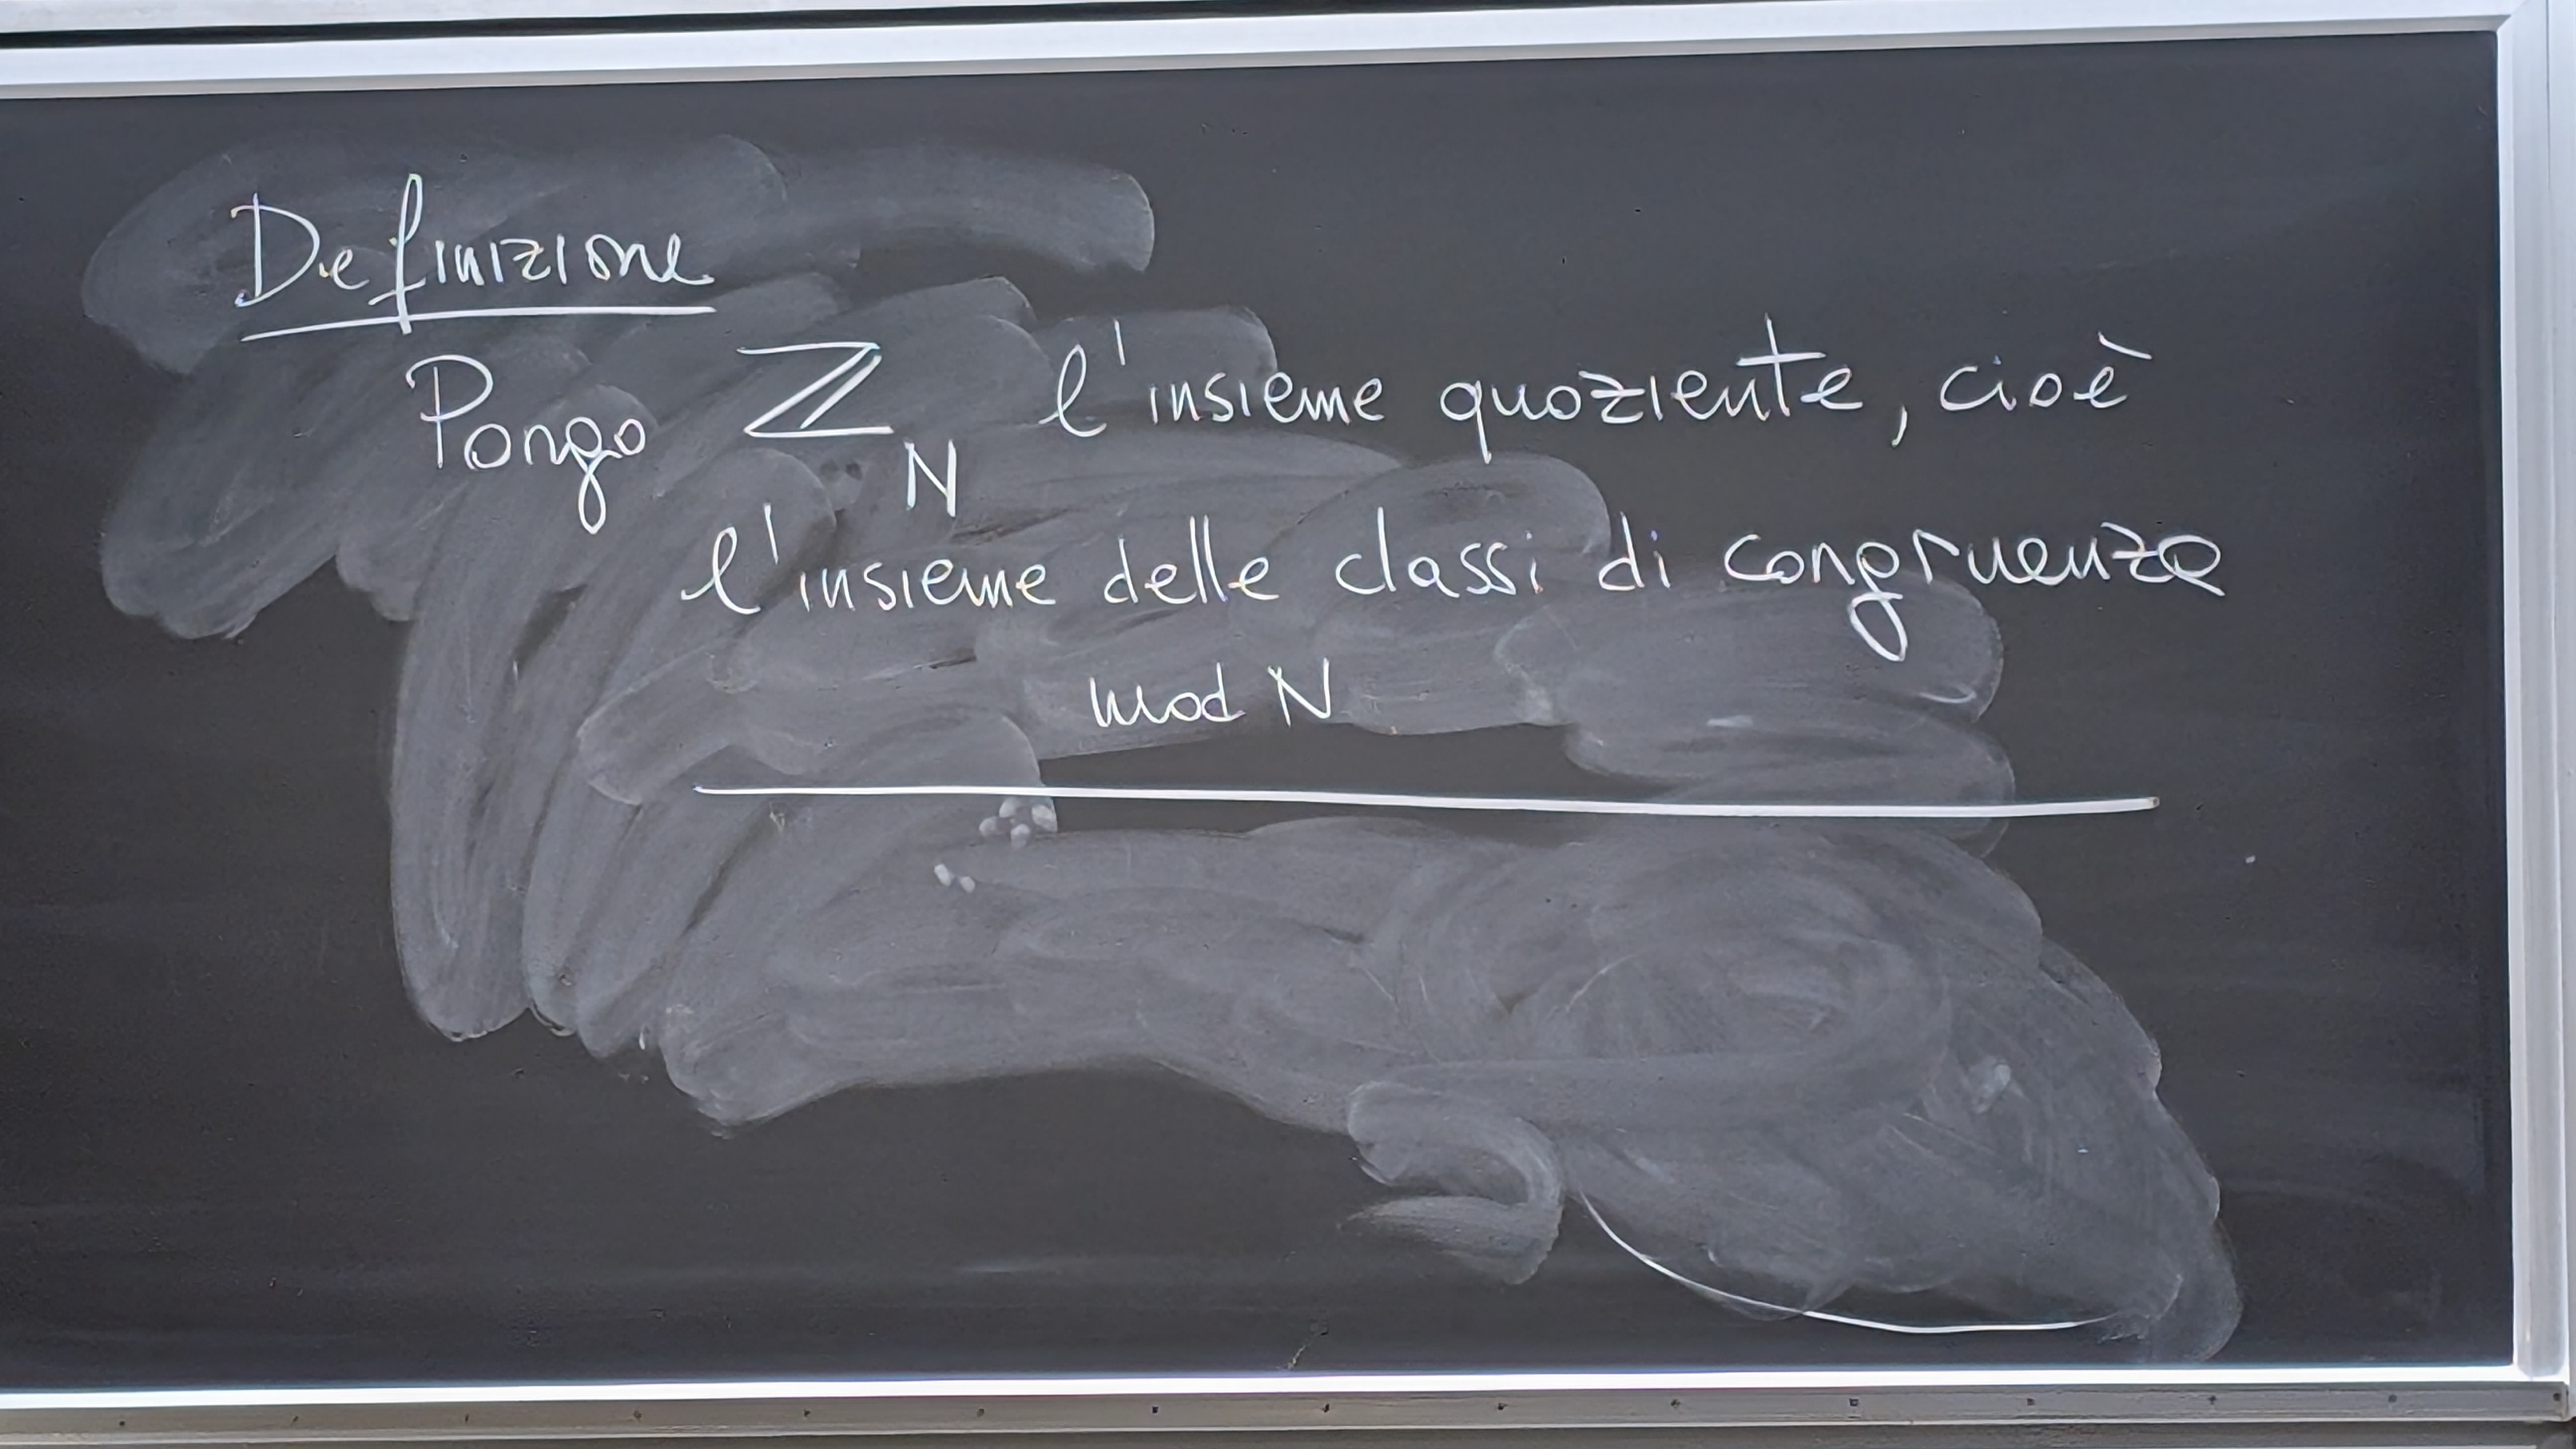 Definizione
Pongo ℤ_N l'insieme quoziente, cioè
l'insieme delle classi di congruenza
mod N